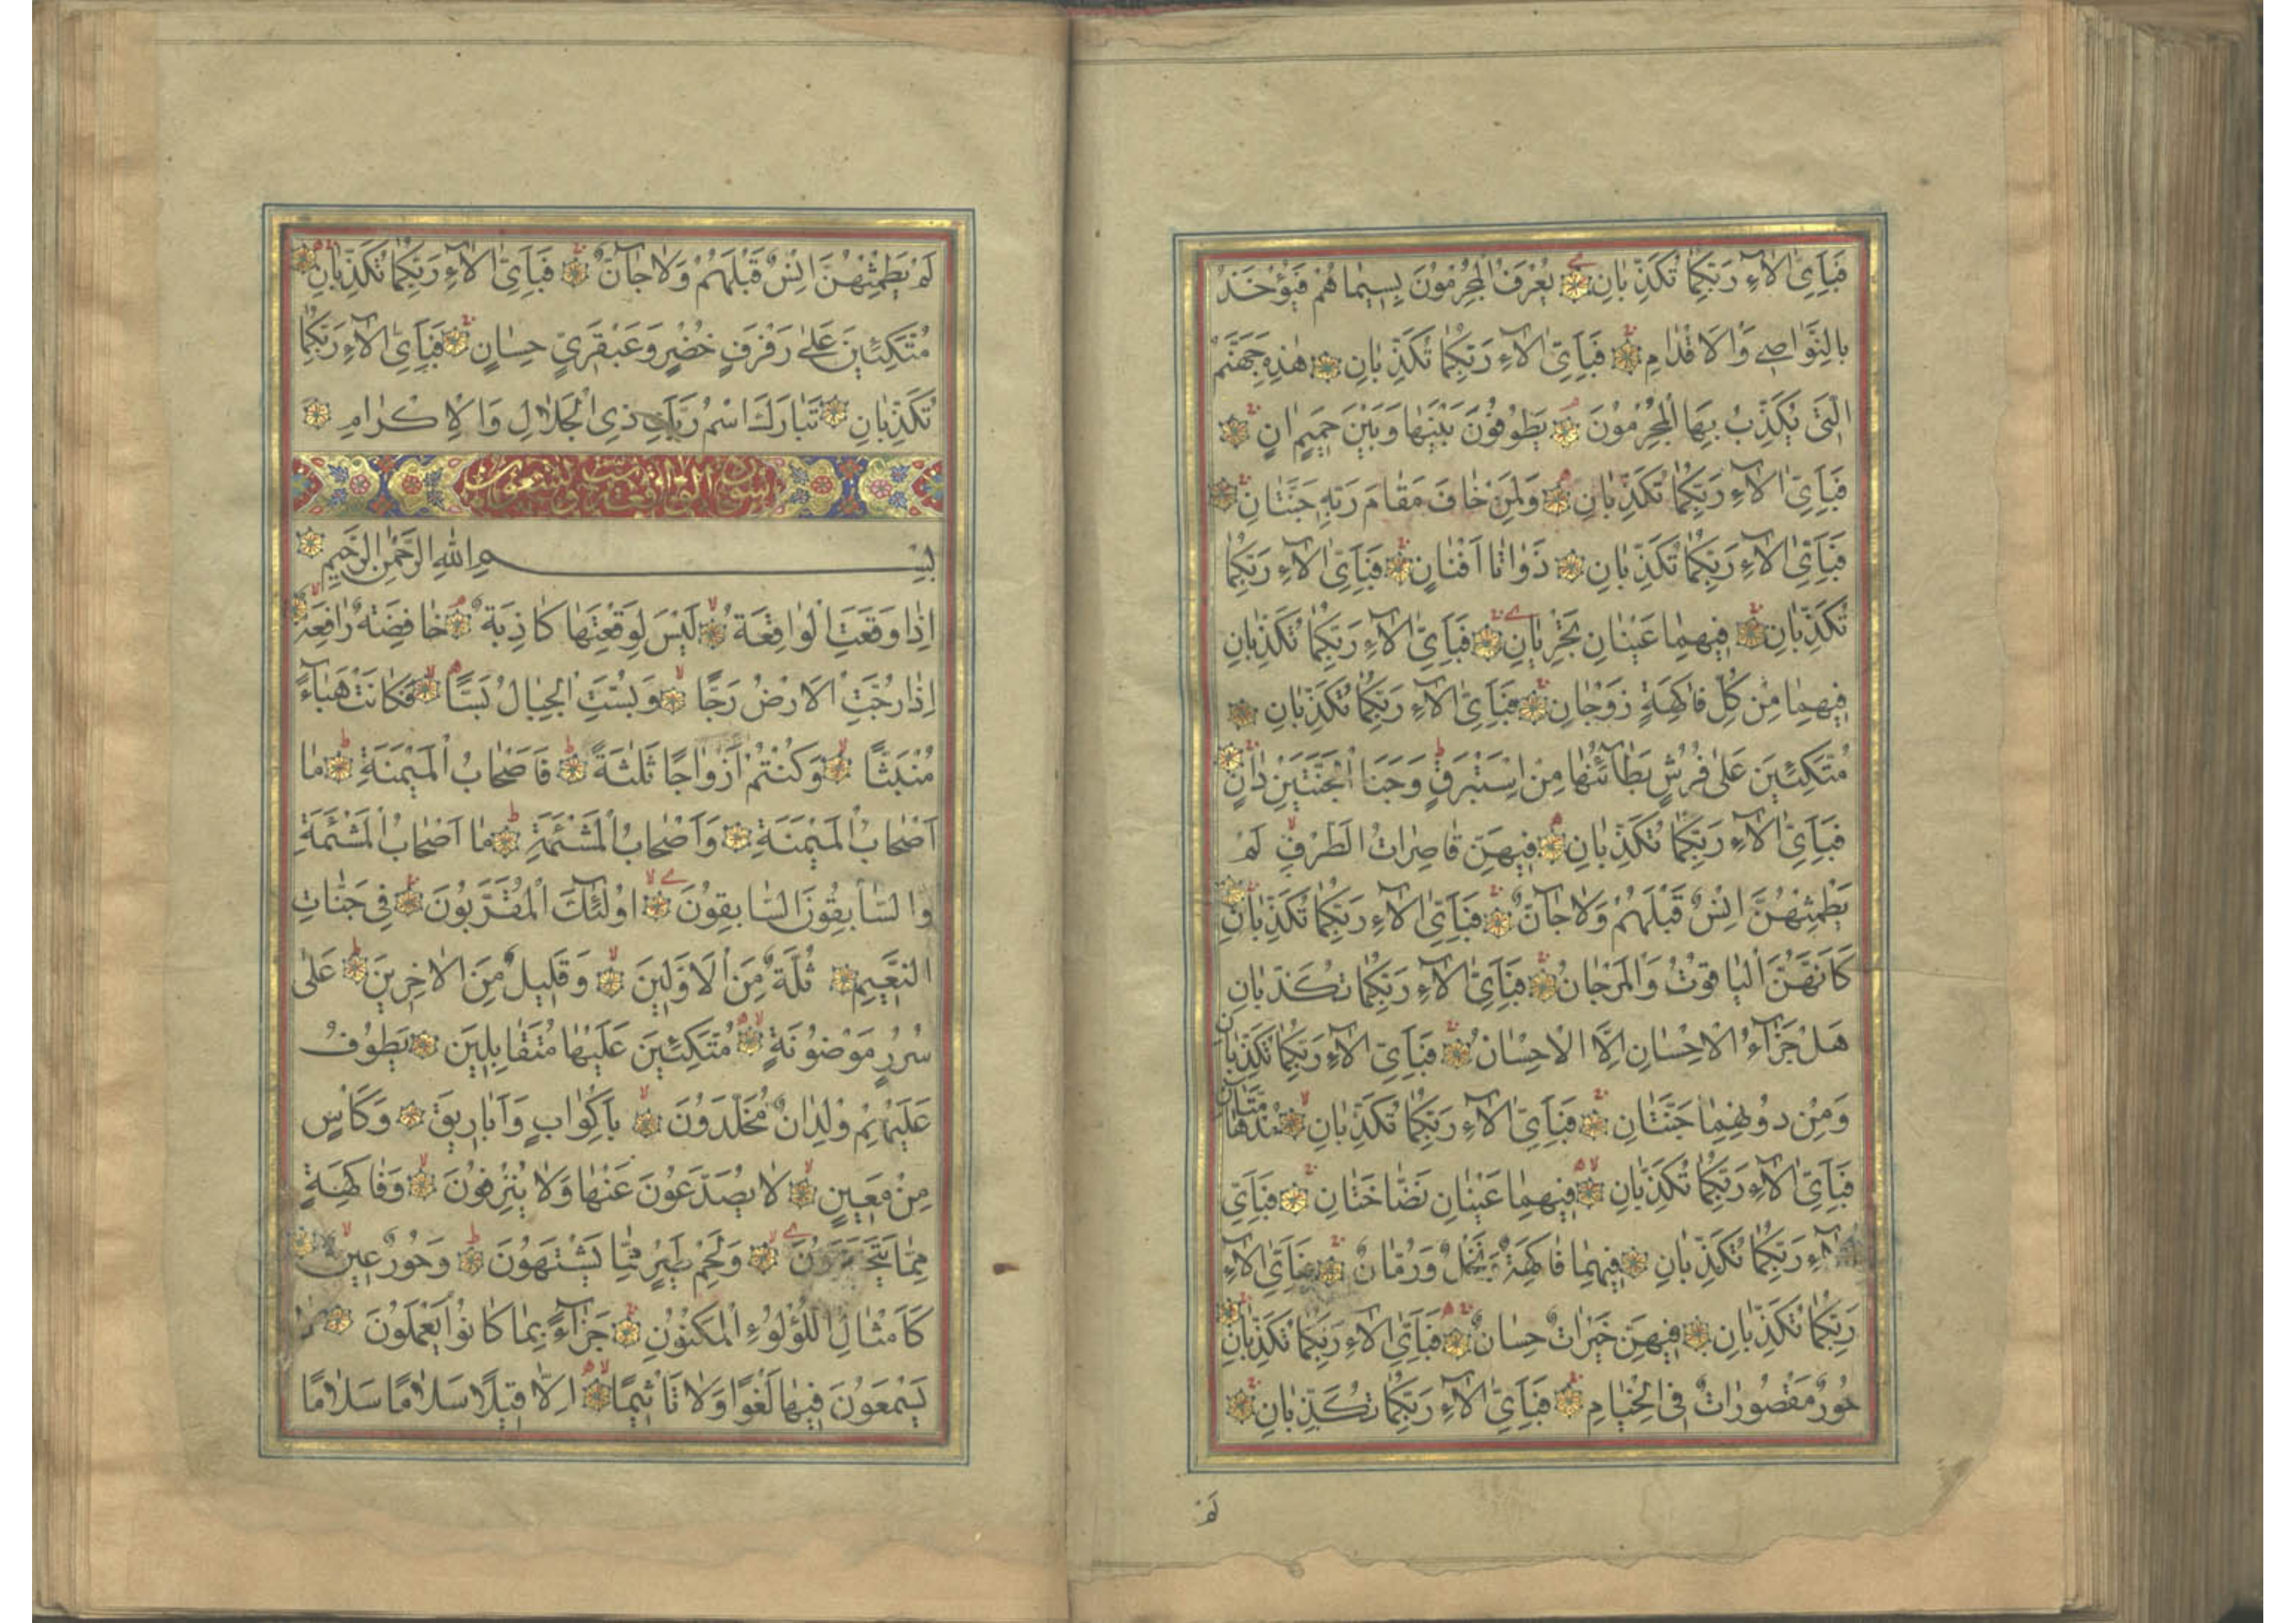 فَبِاَىِّ اٰلَآءِ رَبِّكُمَا تُكَذِّبَانِ يُعْرَفُ الْمُجْرِمُونَ بِسِيمَاهُمْ فَيُؤْخَذُ
بِالنَّوَاصِى وَالْاَقْدَامِ فَبِاَىِّ اٰلَآءِ رَبِّكُمَا تُكَذِّبَانِ هٰذِهِ جَهَنَّمُ
الَّتِى يُكَذِّبُ بِهَا الْمُجْرِمُونَ يَطُوفُونَ بَيْنَهَا وَبَيْنَ حَمِيمٍ اٰنٍ
فَبِاَىِّ اٰلَآءِ رَبِّكُمَا تُكَذِّبَانِ وَلِمَنْ خَافَ مَقَامَ رَبِّهِ جَنَّتَانِ
فَبِاَىِّ اٰلَآءِ رَبِّكُمَا تُكَذِّبَانِ ذَوَاتَا اَفْنَانٍ فَبِاَىِّ اٰلَآءِ رَبِّكُمَا
تُكَذِّبَانِ فِيهِمَا عَيْنَانِ تَجْرِيَانِ فَبِاَىِّ اٰلَآءِ رَبِّكُمَا تُكَذِّبَانِ
فِيهِمَا مِنْ كُلِّ فَاكِهَةٍ زَوْجَانِ فَبِاَىِّ اٰلَآءِ رَبِّكُمَا تُكَذِّبَانِ
مُتَّكِئِينَ عَلٰى فُرُشٍ بَطَآئِنُهَا مِنْ اِسْتَبْرَقٍ وَجَنَا الْجَنَّتَيْنِ دَانٍ
فَبِاَىِّ اٰلَآءِ رَبِّكُمَا تُكَذِّبَانِ فِيهِنَّ قَاصِرَاتُ الطَّرْفِ لَمْ
يَطْمِثْهُنَّ اِنْسٌ قَبْلَهُمْ وَلَا جَآنٌّ فَبِاَىِّ اٰلَآءِ رَبِّكُمَا تُكَذِّبَانِ
كَاَنَّهُنَّ الْيَاقُوتُ وَالْمَرْجَانُ فَبِاَىِّ اٰلَآءِ رَبِّكُمَا تُكَذِّبَانِ
هَلْ جَزَآءُ الْاِحْسَانِ اِلَّا الْاِحْسَانُ فَبِاَىِّ اٰلَآءِ رَبِّكُمَا تُكَذِّبَانِ
وَمِنْ دُونِهِمَا جَنَّتَانِ فَبِاَىِّ اٰلَآءِ رَبِّكُمَا تُكَذِّبَانِ مُدْهَامَّتَانِ
فَبِاَىِّ اٰلَآءِ رَبِّكُمَا تُكَذِّبَانِ فِيهِمَا عَيْنَانِ نَضَّاخَتَانِ فَبِاَىِّ
اٰلَآءِ رَبِّكُمَا تُكَذِّبَانِ فِيهِمَا فَاكِهَةٌ وَنَخْلٌ وَرُمَّانٌ فَبِاَىِّ اٰلَآءِ
رَبِّكُمَا تُكَذِّبَانِ فِيهِنَّ خَيْرَاتٌ حِسَانٌ فَبِاَىِّ اٰلَآءِ رَبِّكُمَا تُكَذِّبَانِ
حُورٌ مَقْصُورَاتٌ فِى الْخِيَامِ فَبِاَىِّ اٰلَآءِ رَبِّكُمَا تُكَذِّبَانِ
لَمْ
لَمْ يَطْمِثْهُنَّ اِنْسٌ قَبْلَهُمْ وَلَا جَآنٌّ فَبِاَىِّ اٰلَآءِ رَبِّكُمَا تُكَذِّبَانِ
مُتَّكِئِينَ عَلٰى رَفْرَفٍ خُضْرٍ وَعَبْقَرِىٍّ حِسَانٍ فَبِاَىِّ اٰلَآءِ رَبِّكُمَا
تُكَذِّبَانِ تَبَارَكَ اسْمُ رَبِّكَ ذِى الْجَلَالِ وَالْاِكْرَامِ
بِسْمِ اللّٰهِ الرَّحْمٰنِ الرَّحِيمِ
اِذَا وَقَعَتِ الْوَاقِعَةُ لَيْسَ لِوَقْعَتِهَا كَاذِبَةٌ خَافِضَةٌ رَافِعَةٌ
اِذَا رُجَّتِ الْاَرْضُ رَجًّا وَبُسَّتِ الْجِبَالُ بَسًّا فَكَانَتْ هَبَآءً
مُنْبَثًّا وَكُنْتُمْ اَزْوَاجًا ثَلٰثَةً فَاَصْحَابُ الْمَيْمَنَةِ مَا
اَصْحَابُ الْمَيْمَنَةِ وَاَصْحَابُ الْمَشْئَمَةِ مَا اَصْحَابُ الْمَشْئَمَةِ
وَالسَّابِقُونَ السَّابِقُونَ اُولٰئِكَ الْمُقَرَّبُونَ فِى جَنَّاتِ
النَّعِيمِ ثُلَّةٌ مِنَ الْاَوَّلِينَ وَقَلِيلٌ مِنَ الْاٰخِرِينَ عَلٰى
سُرُرٍ مَوْضُونَةٍ مُتَّكِئِينَ عَلَيْهَا مُتَقَابِلِينَ يَطُوفُ
عَلَيْهِمْ وِلْدَانٌ مُخَلَّدُونَ بِاَكْوَابٍ وَاَبَارِيقَ وَكَاْسٍ
مِنْ مَعِينٍ لَا يُصَدَّعُونَ عَنْهَا وَلَا يُنْزِفُونَ وَفَاكِهَةٍ
مِمَّا يَتَخَيَّرُونَ وَلَحْمِ طَيْرٍ مِمَّا يَشْتَهُونَ وَحُورٌ عِينٌ
كَاَمْثَالِ اللُّؤْلُوءِ الْمَكْنُونِ جَزَآءً بِمَا كَانُوا يَعْمَلُونَ لَا
يَسْمَعُونَ فِيهَا لَغْوًا وَلَا تَاْثِيمًا اِلَّا قِيلًا سَلَامًا سَلَامًا